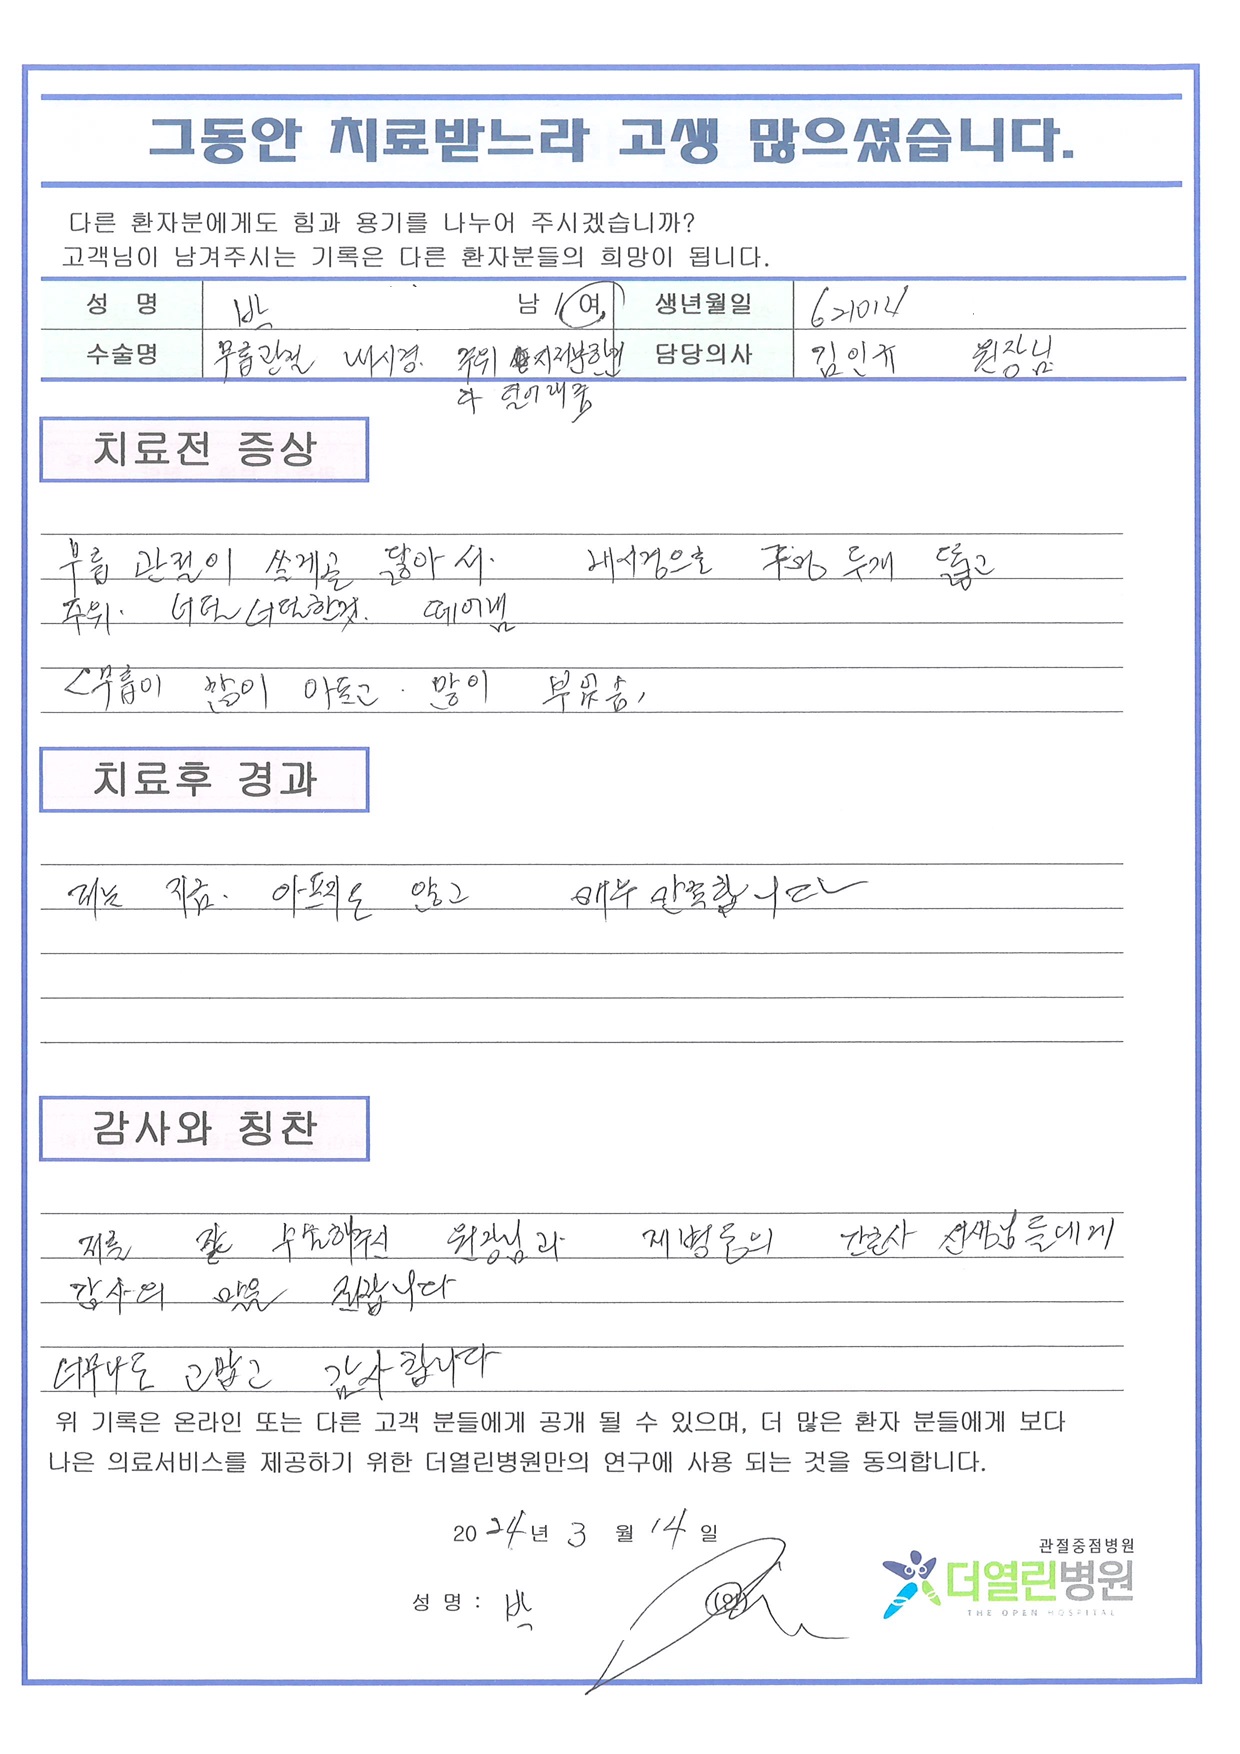 그동안 치료받느라 고생 많으셨습니다.
다른 환자분에게도 힘과 용기를 나누어 주시겠습니까?
고객님이 남겨주시는 기록은 다른 환자분들의 희망이 됩니다.
성 명 박 남 / 여 생년월일 621014
수술명 무릎관절 내시경. 주위 담당의사 김인규 원장님
치료전 증상
무릎 관절이 쓸게골 닳아서. 내시경으로 구멍 두개 뚫고
주위. 너덜너덜한것. 떼어냄
<무릎이 많이 아프고. 많이 부었슴,
치료후 경과
저는 지금. 아프지도 않고 매우 만족합니다
감사와 칭찬
저를 잘 수술해주신 원장님과 제병동의 간호사 선생님들에게
감사의 말을 전합니다
너무나도 고맙고 감사합니다
위 기록은 온라인 또는 다른 고객 분들에게 공개 될 수 있으며, 더 많은 환자 분들에게 보다
나은 의료서비스를 제공하기 위한 더열린병원만의 연구에 사용 되는 것을 동의합니다.
2024년 3 월 14 일
성 명 : 박 (인)
관절중점병원
더열린병원
THE OPEN HOSPITAL